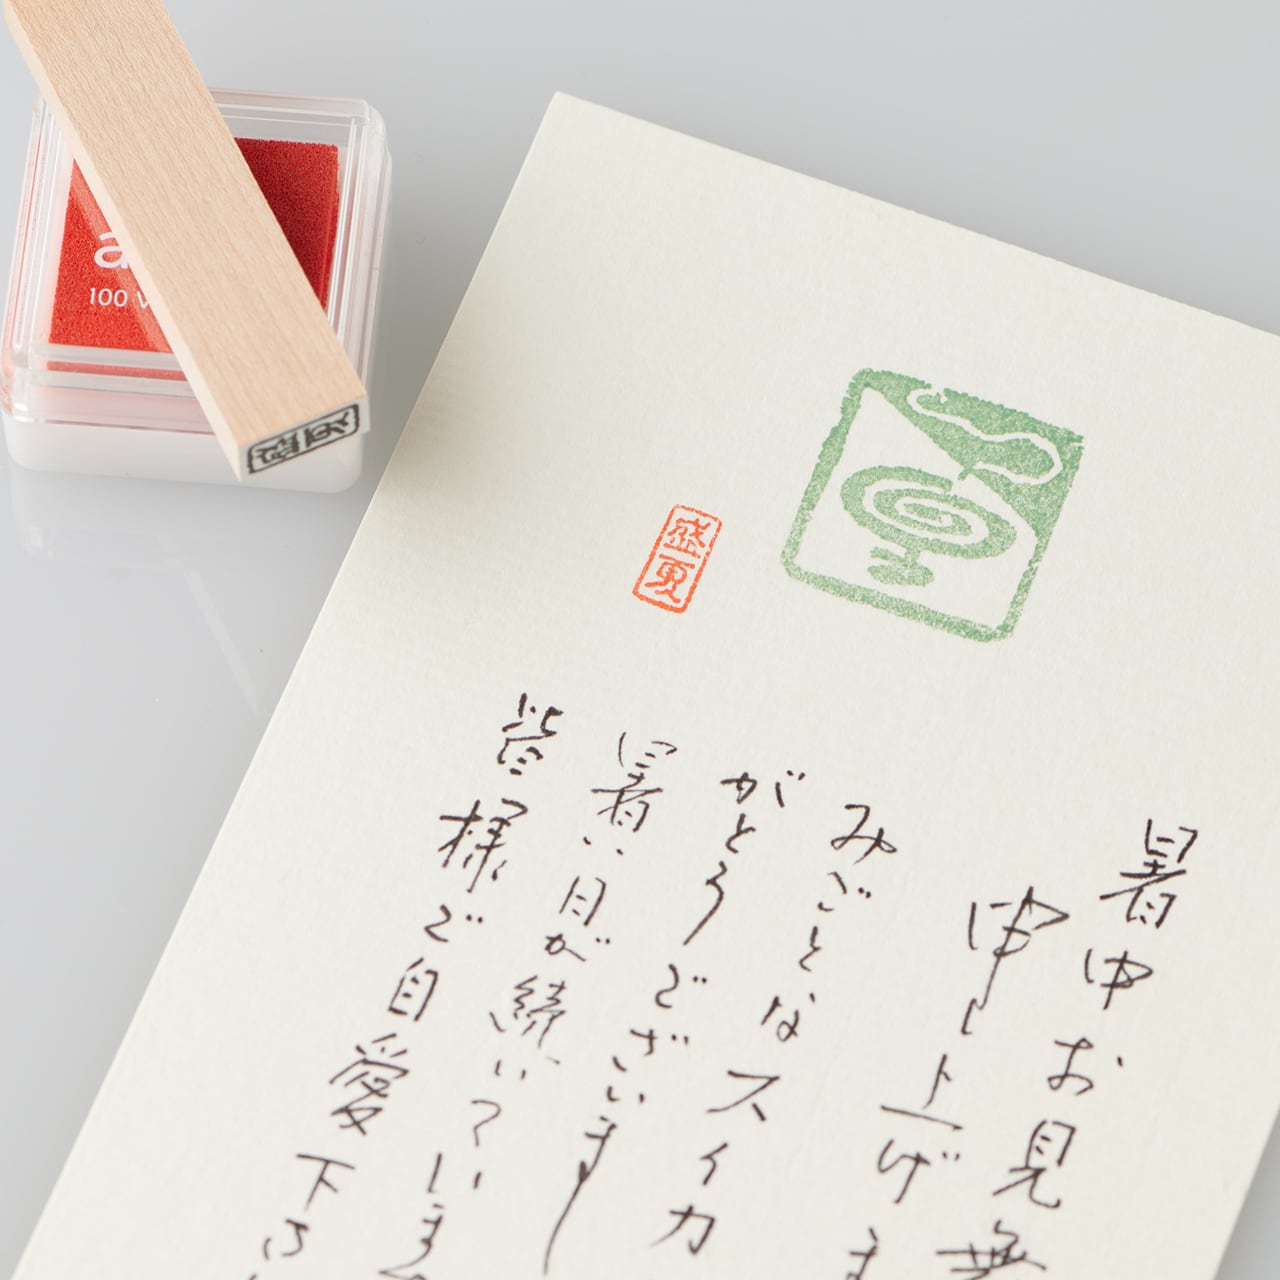 暑中お見無
申し上げま
みごとなスイカ
がとうございまし
暑い日が続いていま
皆様で自愛下さ
盛夏
盛夏
a
100 V